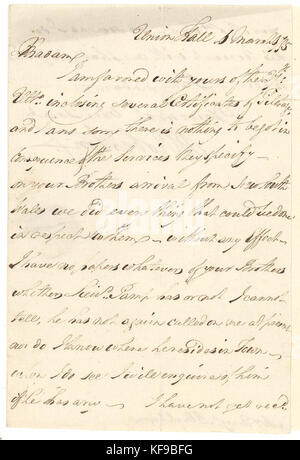 Union Hall 5 March 1795
Madam
I am favored with yours of the 28th
Ulto. inclosing several Certificates &
and I am sorry there is nothing to be got in
Consequence of the Services they specify —
on your Brothers arrival from New South
Wales we did every thing that could be done
in respect to them — without any Effect —
I have no papers whatever of your Brothers
whether Neile Camp has or not I cannot
tell, he has not again called on me at present
nor do I know where he resides in Town —
when I do see I will enquire of him
if he has any — I have not yet recd.
alamy
Image ID: KF9BFG
www.alamy.com